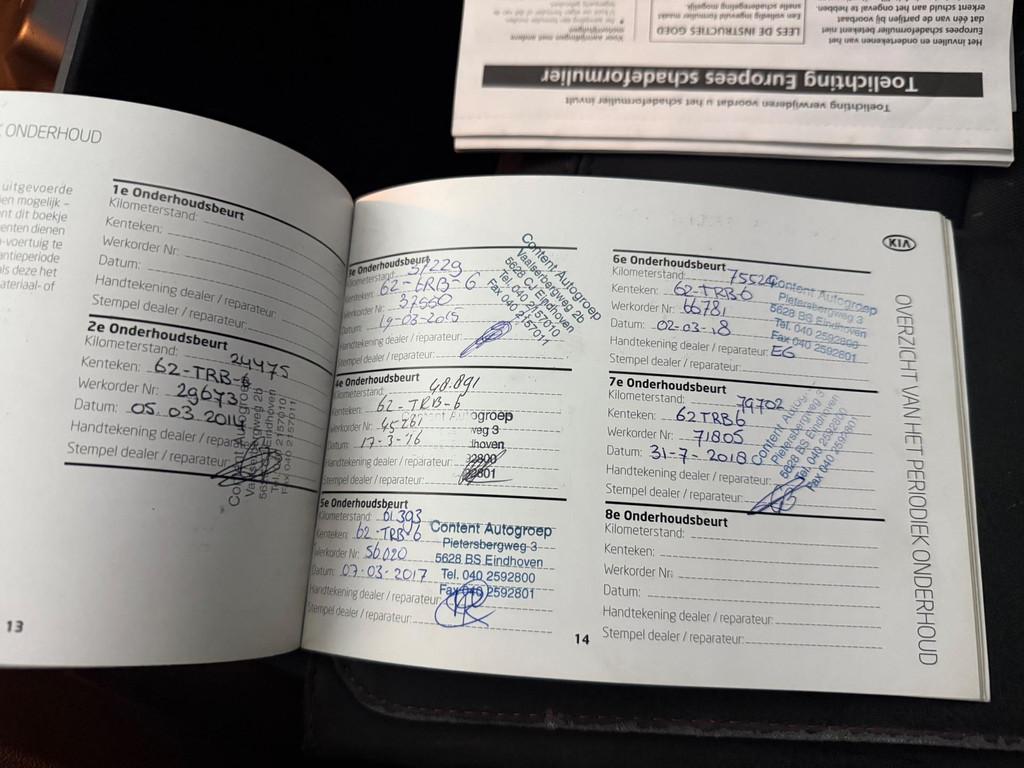 Toelichting verwijderen voordat u het schadeformulier invult
Toelichting Europees schadeformulier
Het invullen en ondertekenen van het
Europees schadeformulier betekent niet
dat één van de partijen bij voorbaat
erkent schuld aan het ongeval te hebben.
LEES DE INSTRUCTIES GOED
Een volledig ingevuld formulier maakt
snelle schaderegeling mogelijk.
Voor aanrijdingen met andere
ONDERHOUD
uitgevoerde
en mogelijk –
nt dit boekje
enten dienen
-voertuig te
antieperiode
als deze het
ateriaal- of
1e Onderhoudsbeurt
Kilometerstand:
Kenteken:
Werkorder Nr:
Datum:
Handtekening dealer / reparateur:
Stempel dealer / reparateur:
2e Onderhoudsbeurt
Kilometerstand: 24475
Kenteken: 62-TRB-6
Werkorder Nr: 29673
Datum: 05.03.2014
Handtekening dealer / reparateur:
Stempel dealer / reparateur:
13
3e Onderhoudsbeurt
Kilometerstand: 37229
Kenteken: 62-TRB-6
Werkorder Nr: 37660
Datum: 19-03-2015
Handtekening dealer / reparateur:
Stempel dealer / reparateur:
Content Autogroep
Vaalserbergweg 2b
5628 CJ Eindhoven
Tel. 040 2157010
Fax 040 2157011
4e Onderhoudsbeurt
Kilometerstand: 48.891
Kenteken: 62-TRB-6
Werkorder Nr: 45261
Datum: 17-3-16
Handtekening dealer / reparateur:
Stempel dealer / reparateur:
5e Onderhoudsbeurt
Kilometerstand: 61.393
Kenteken: 62-TRB-6
Werkorder Nr: 56020
Datum: 07-03-2017
Handtekening dealer / reparateur:
Stempel dealer / reparateur:
Content Autogroep
Pietersbergweg 3
5628 BS Eindhoven
Tel. 040 2592800
Fax 040 2592801
14
KIA
6e Onderhoudsbeurt
Kilometerstand: 75524
Kenteken: 62-TRB6
Werkorder Nr: 66781
Datum: 02-03-18
Handtekening dealer / reparateur: EG
Stempel dealer / reparateur:
Content Autogroep
Pietersbergweg 3
5628 BS Eindhoven
Tel. 040 2592800
Fax 040 2592801
7e Onderhoudsbeurt
Kilometerstand: 79702
Kenteken: 62TRB6
Werkorder Nr: 71805
Datum: 31-7-2018
Handtekening dealer / reparateur:
Stempel dealer / reparateur:
Content Autogroep
Pietersbergweg 3
5628 BS Eindhoven
Tel. 040 2592800
Fax 040 2592801
8e Onderhoudsbeurt
Kilometerstand:
Kenteken:
Werkorder Nr:
Datum:
Handtekening dealer / reparateur:
Stempel dealer / reparateur:
OVERZICHT VAN HET PERIODIEK ONDERHOUD